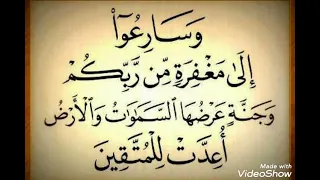 وَسَارِعُوٓا۟
إِلَىٰ مَغْفِرَةٍ مِّن رَّبِّكُمْ
وَجَنَّةٍ عَرْضُهَا ٱلسَّمَٰوَٰتُ وَٱلْأَرْضُ
أُعِدَّتْ لِلْمُتَّقِينَ
Made with
VideoShow